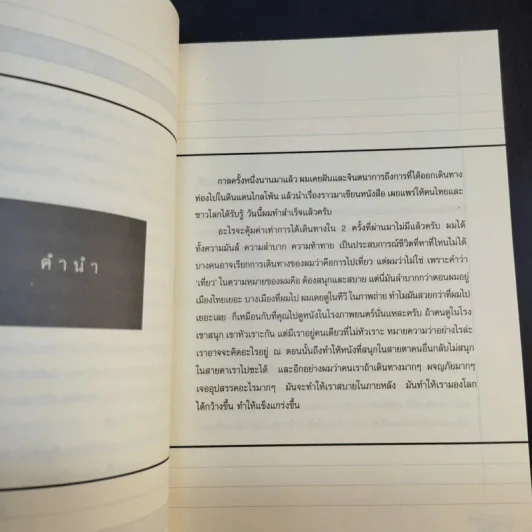 คำนำ
กาลครั้งหนึ่งนานมาแล้ว ผมเคยฝันและจินตนาการถึงการที่ได้ออกเดินทาง
ท่องไปในดินแดนไกลโพ้น แล้วนำเรื่องราวมาเขียนหนังสือ เผยแพร่ให้คนไทยและ
ชาวโลกได้รับรู้ วันนี้ผมทำสำเร็จแล้วครับ
อะไรจะคุ้มค่าเท่าการได้เดินทางใน 2 ครั้งที่ผ่านมาไม่มีแล้วครับ ผมได้
ทั้งความมันส์ ความลำบาก ความท้าทาย เป็นประสบการณ์ชีวิตที่หาที่ไหนไม่ได้
บางคนอาจเรียกการเดินทางของผมว่าคือการไปเที่ยว แต่ผมว่าไม่ใช่ เพราะคำว่า
'เที่ยว' ในความหมายของผมคือ ต้องสนุกและสบาย แต่นี่มันลำบากกว่าตอนผมอยู่
เมืองไทยเยอะ บางเมืองที่ผมไป ผมเคยดูในทีวี ในภาพถ่าย ทำไมมันสวยกว่าที่ผมไป
เยอะเลย ก็เหมือนกับที่คุณไปดูหนังในโรงภาพยนตร์นั่นแหละครับ ถ้าคนดูในโรง
เขาสนุก เขาหัวเราะกัน แต่มีเราอยู่คนเดียวที่ไม่หัวเราะ หมายความว่าอย่างไรล่ะ
เราอาจจะคิดอะไรอยู่ ณ ตอนนั้นถึงทำให้หนังที่สนุกในสายตาคนอื่นกลับไม่สนุก
ในสายตาเราไปซะได้ และอีกอย่างผมว่าคนเราถ้าเดินทางมากๆ ผจญภัยมากๆ
เจออุปสรรคอะไรมากๆ มันจะทำให้เราสบายในภายหลัง มันทำให้เรามองโลก
ได้กว้างขึ้น ทำให้แข็งแกร่งขึ้น